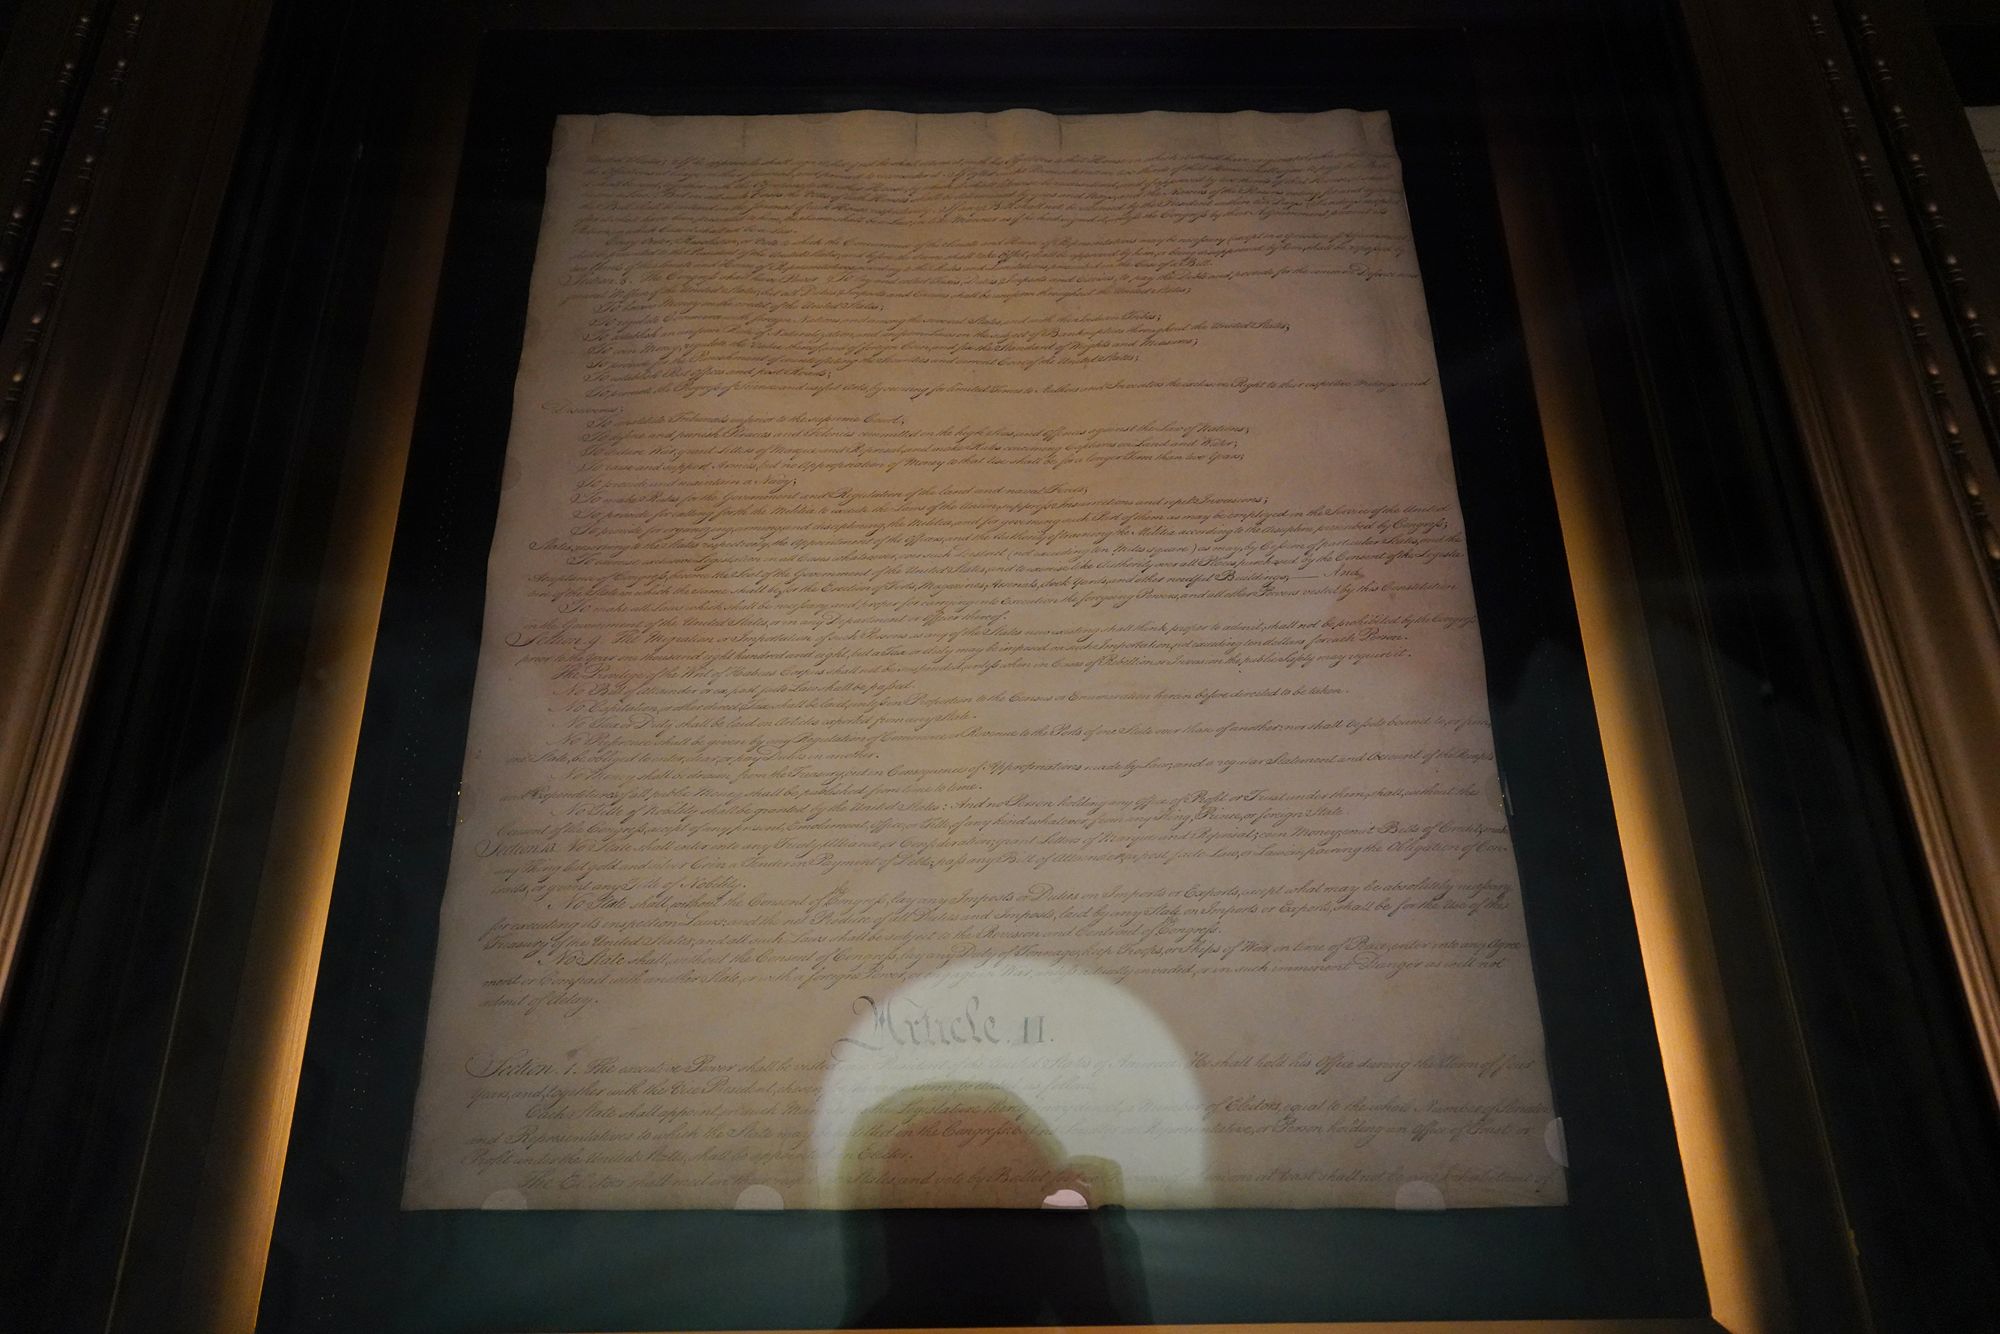 United States; If he approve he shall sign it, but if not he shall return it, with his Objections to that House in which it shall have originated, who shall enter
the Objections at large on their Journal, and proceed to reconsider it. If after such Reconsideration two thirds of that House shall agree to pass the Bill,
it shall be sent, together with the Objections, to the other House, by which it shall likewise be reconsidered, and if approved by two thirds of that House, it shall become
a Law. But in all such Cases the Votes of both Houses shall be determined by yeas and Nays, and the Names of the Persons voting for and against
the Bill shall be entered on the Journal of each House respectively. If any Bill shall not be returned by the President within ten Days (Sundays excepted)
after it shall have been presented to him, the Same shall be a Law, in like Manner as if he had signed it, unless the Congress by their Adjournment prevent its
Return, in which Case it shall not be a Law.
Every Order, Resolution, or Vote to which the Concurrence of the Senate and House of Representatives may be necessary (except on a question of Adjournment)
shall be presented to the President of the United States; and before the Same shall take Effect, shall be approved by him, or being disapproved by him, shall be repassed by
two thirds of the Senate and House of Representatives, according to the Rules and Limitations prescribed in the Case of a Bill.
Section. 8. The Congress shall have Power To lay and collect Taxes, Duties, Imposts and Excises, to pay the Debts and provide for the common Defence and
general Welfare of the United States; but all Duties, Imposts and Excises shall be uniform throughout the United States;
To borrow Money on the credit of the United States;
To regulate Commerce with foreign Nations, and among the several States, and with the Indian Tribes;
To establish an uniform Rule of Naturalization, and uniform Laws on the subject of Bankruptcies throughout the United States;
To coin Money, regulate the Value thereof, and of foreign Coin, and fix the Standard of Weights and Measures;
To provide for the Punishment of counterfeiting the Securities and current Coin of the United States;
To establish Post Offices and post Roads;
To promote the Progress of Science and useful Arts, by securing for limited Times to Authors and Inventors the exclusive Right to their respective Writings and
Discoveries;
To constitute Tribunals inferior to the supreme Court;
To define and punish Piracies and Felonies committed on the high Seas, and Offences against the Law of Nations;
To declare War, grant Letters of Marque and Reprisal, and make Rules concerning Captures on Land and Water;
To raise and support Armies, but no Appropriation of Money to that Use shall be for a longer Term than two Years;
To provide and maintain a Navy;
To make Rules for the Government and Regulation of the land and naval Forces;
To provide for calling forth the Militia to execute the Laws of the Union, suppress Insurrections and repel Invasions;
To provide for organizing, arming, and disciplining, the Militia, and for governing such Part of them as may be employed in the Service of the United
States, reserving to the States respectively, the Appointment of the Officers, and the Authority of training the Militia according to the discipline prescribed by Congress;
To exercise exclusive Legislation in all Cases whatsoever, over such District (not exceeding ten Miles square) as may, by Cession of particular States, and the
Acceptance of Congress, become the Seat of the Government of the United States, and to exercise like Authority over all Places purchased by the Consent of the Legisla-
ture of the State in which the Same shall be, for the Erection of Forts, Magazines, Arsenals, dock-Yards, and other needful Buildings;—And
To make all Laws which shall be necessary and proper for carrying into Execution the foregoing Powers, and all other Powers vested by this Constitution
in the Government of the United States, or in any Department or Officer thereof.
Section. 9. The Migration or Importation of such Persons as any of the States now existing shall think proper to admit, shall not be prohibited by the Congress
prior to the Year one thousand eight hundred and eight, but a Tax or duty may be imposed on such Importation, not exceeding ten dollars for each Person.
The Privilege of the Writ of Habeas Corpus shall not be suspended, unless when in Cases of Rebellion or Invasion the public Safety may require it.
No Bill of Attainder or ex post facto Law shall be passed.
No Capitation, or other direct, Tax shall be laid, unless in Proportion to the Census or Enumeration herein before directed to be taken.
No Tax or Duty shall be laid on Articles exported from any State.
No Preference shall be given by any Regulation of Commerce or Revenue to the Ports of one State over those of another: nor shall Vessels bound to, or from,
one State, be obliged to enter, clear, or pay Duties in another.
No Money shall be drawn from the Treasury, but in Consequence of Appropriations made by Law; and a regular Statement and Account of the Receipts
and Expenditures of all public Money shall be published from time to time.
No Title of Nobility shall be granted by the United States: And no Person holding any Office of Profit or Trust under them, shall, without the
Consent of the Congress, accept of any present, Emolument, Office, or Title, of any kind whatever, from any King, Prince, or foreign State.
Section. 10. No State shall enter into any Treaty, Alliance, or Confederation; grant Letters of Marque and Reprisal; coin Money; emit Bills of Credit; make
any Thing but gold and silver Coin a Tender in Payment of Debts; pass any Bill of Attainder, ex post facto Law, or Law impairing the Obligation of Con-
tracts, or grant any Title of Nobility.
No State shall, without the Consent of the Congress, lay any Imposts or Duties on Imports or Exports, except what may be absolutely necessary
for executing its inspection Laws: and the net Produce of all Duties and Imposts, laid by any State on Imports or Exports, shall be for the Use of the
Treasury of the United States; and all such Laws shall be subject to the Revision and Controul of the Congress.
No State shall, without the Consent of Congress, lay any Duty of Tonnage, keep Troops, or Ships of War in time of Peace, enter into any Agree-
ment or Compact with another State, or with a foreign Power, or engage in War, unless actually invaded, or in such imminent Danger as will not
admit of delay.
Article. II.
Section. 1. The executive Power shall be vested in a President of the United States of America. He shall hold his Office during the Term of four
Years, and, together with the Vice President, chosen for the same Term, be elected, as follows
Each State shall appoint, in such Manner as the Legislature thereof may direct, a Number of Electors, equal to the whole Number of Senators
and Representatives to which the State may be entitled in the Congress: but no Senator or Representative, or Person holding an Office of Trust or
Profit under the United States, shall be appointed an Elector.
The Electors shall meet in their respective States, and vote by Ballot for two Persons, of whom one at least shall not be an Inhabitant of